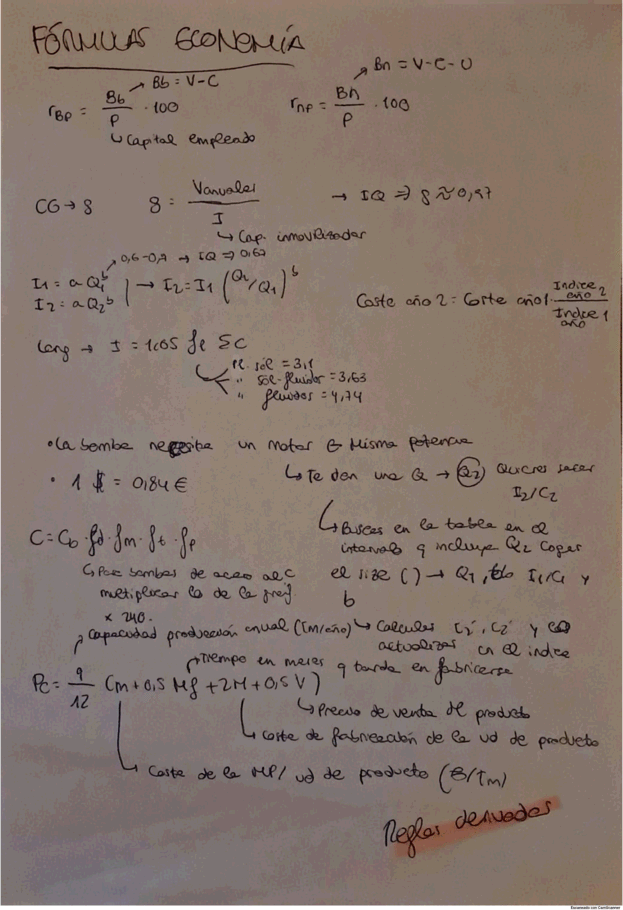 FÓRMULAS ECONOMÍA
Bb = V-C
Bn = V-C-U
r_BP = Bb/P · 100
r_np = Bn/P · 100
Capital empleado
CG → g   g = Vanuales/I   → IQ ⇒ g ≈ 0,97
Cap. inmovilizador
0,6-0,7 → IQ ⇒ 0,62
I1 = a Q1^b
I2 = a Q2^b → I2 = I1 (Q2/Q1)^b
Coste año 2 = Coste año 1 · Indice año 2/Indice año 1
Lang → I = 1.05 fe ΣC
pl. sól = 3,1
" sol-fluidos = 3,63
" fluidos = 4,74
· La bomba necesita un motor Misma potencia
· 1 $ = 0,84 €
Te dan una Q → Q2 Quieres sacar
I2/C2
Buscas en la tabla en el
intervalo q incluye Q2 coger
el size ( ) → Q1, I1/C1 y
b
C = Cb · fd · fm · ft · fp
Para bombas de acero al C
multiplicar la de la
x 240.
Calculas I2', C2' y
actualizas en el indice
Capacidad producción anual (Tm/año)
tiempo en meses q tarda en fabricarse
Pc = q/12 (m + 0,5 Mf + 2M + 0,5 V)
Precio de venta del producto
Coste de fabricación de la ud de producto
Coste de la MP/ ud de producto ($/Tm)
Reglas derivadas
Escaneado con CamScanner